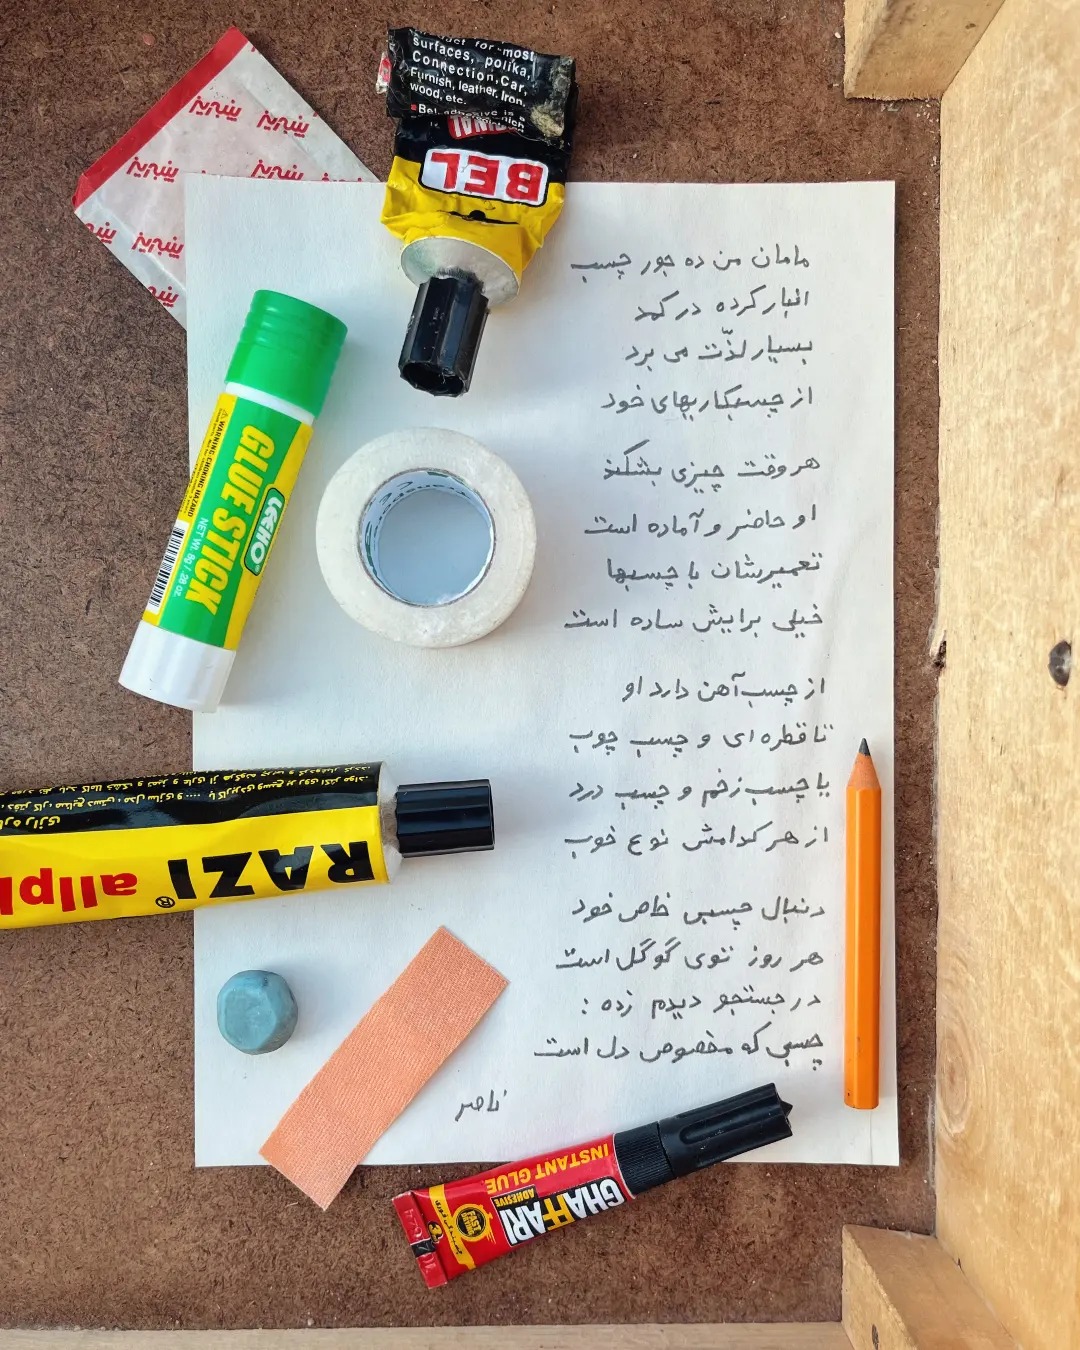 مامان من ده جور چسب
انبار کرده در کمد
بسیار لذّت می برد
از چسبکاریهای خود
هر وقت چیزی بشکند
او حاضر و آماده است
تعمیرشان با چسبها
خیلی برایش ساده است
از چسب آهن دارد او
تا قطره ای و چسب چوب
با چسب زخم و چسب درد
از هر کدامش نوع خوب
دنبال چسبی خاص خود
هر روز توی گوگل است
در جستجو دیدم زده :
چسبی که مخصوص دل است
ناصر
surfaces, polika,
Connection, Car,
Furnish, leather. Iron,
wood, etc.
BEL
GLUE STICK
LEEHO
NET WT. 8g / .28 oz.
WARNING: CHOKING HAZARD
RAZI®
رازی
INSTANT GLUE
GHAFFARI
ADHESIVE